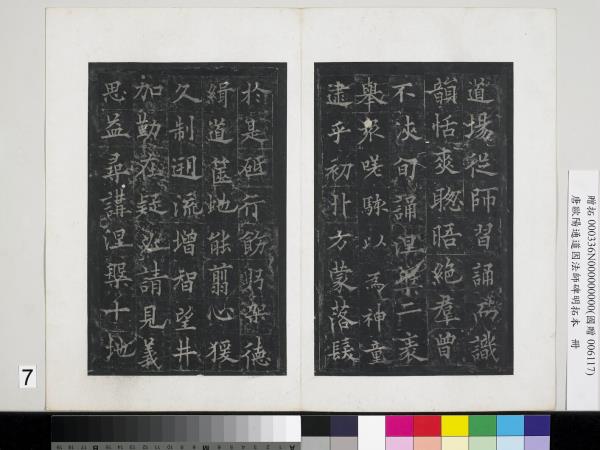 道場從師習誦而識
韻恬爽聦晤絶羣曾
不浹旬誦涅槃二袠
舉衆嗟駭以爲神童
逮乎初丱方蒙落髮
於是砥行飭躬架德
緝道篋虵能翦心猨
久制迥流增智望井
加勤在疑必請見義
思益尋講涅槃十地
贈拓 000336N000000000(國贈 006117)
唐歐陽通道因法師碑明拓本 冊
7